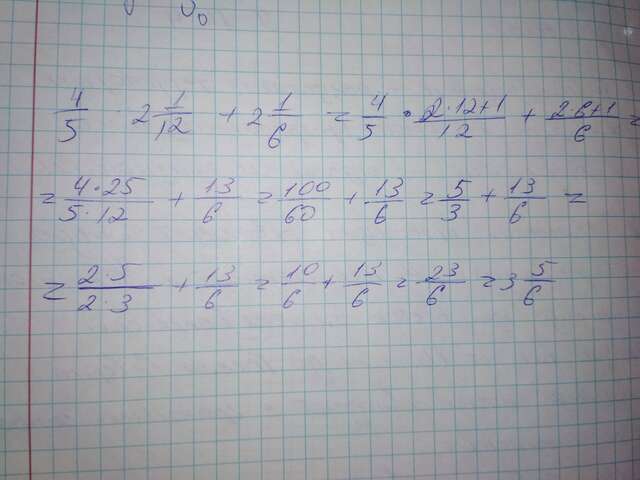 4/5 2 1/12 + 2 1/6 = 4/5 · 2·12+1/12 + 2·6+1/6 =
= 4·25/5·12 + 13/6 = 100/60 + 13/6 = 5/3 + 13/6 =
= 2·5/2·3 + 13/6 = 10/6 + 13/6 = 23/6 = 3 5/6